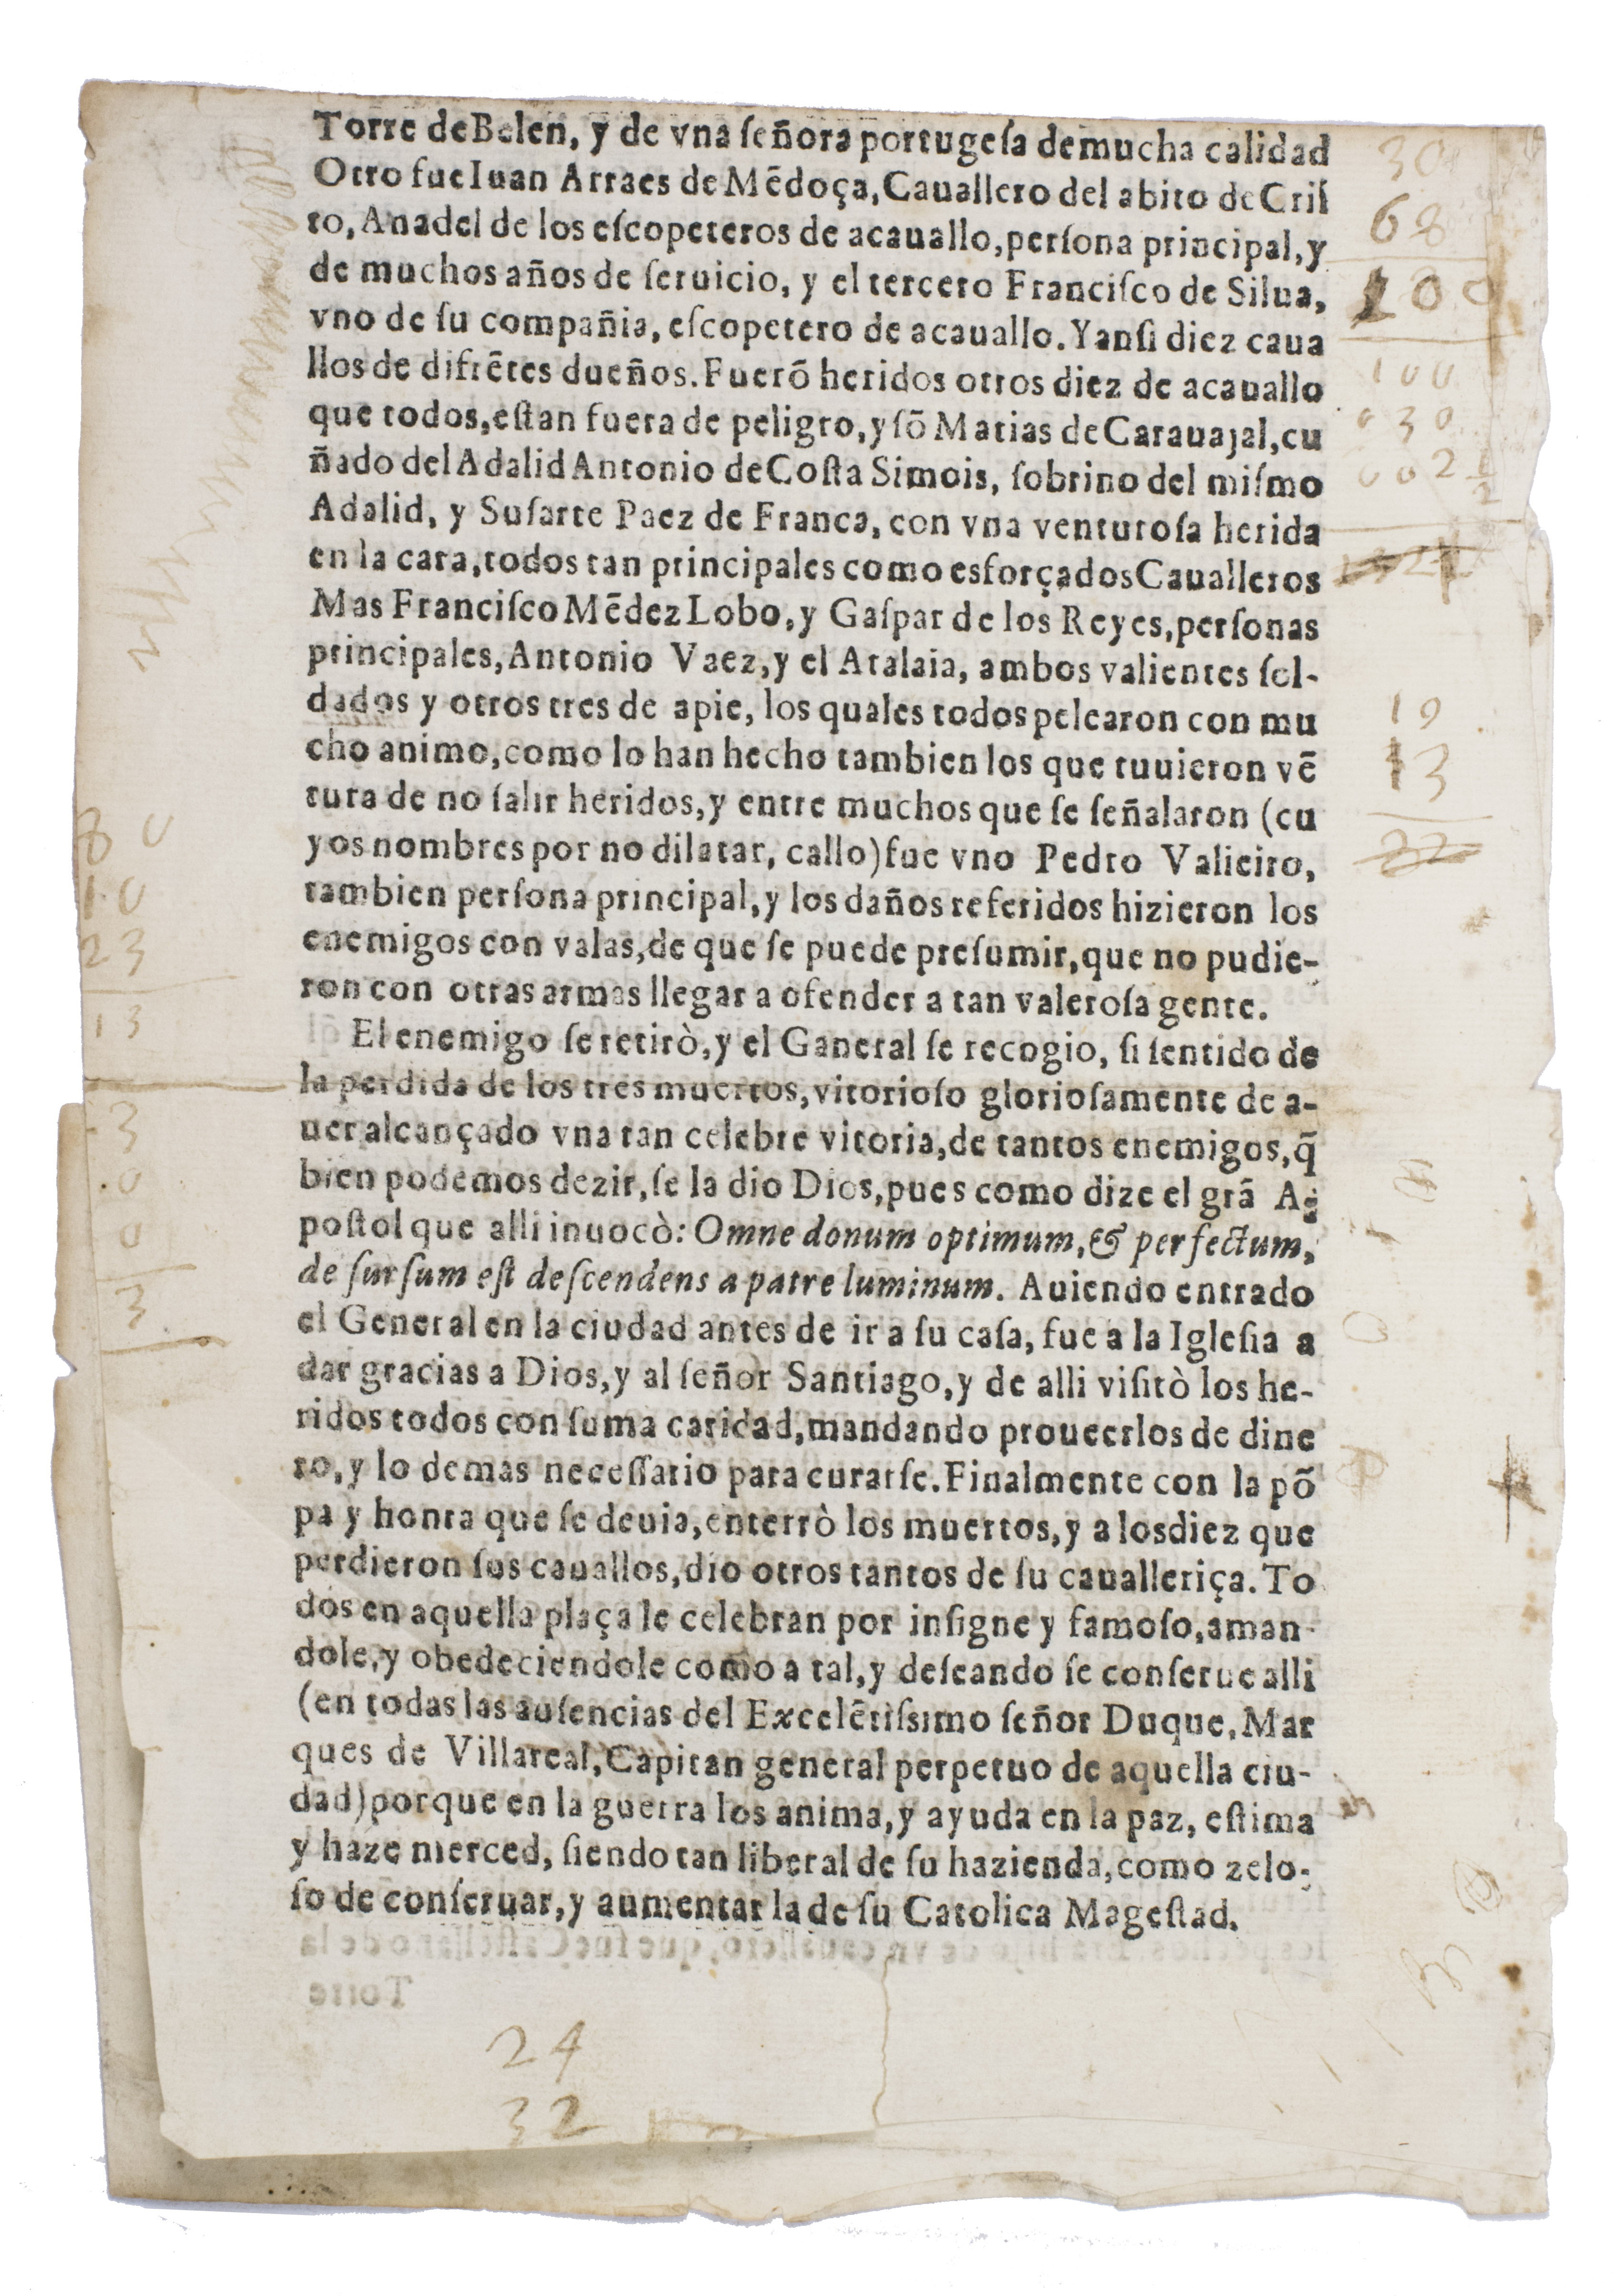 Torre de Belen, y de vna ſeñora portugeſa de mucha calidad
Otro fue Iuan Arraes de Mēdoça, Cauallero del abito de Criſ
to, Anadel de los eſcopeteros de acauallo, perſona principal, y
de muchos años de ſeruicio, y el tercero Franciſco de Silua,
vno de ſu compañia, eſcopetero de acauallo. Y anſi diez caua
llos de difrētes dueños. Fuerō heridos otros diez de acauallo
que todos, eſtan fuera de peligro, y ſō Matias de Carauajal, cu
ñado del Adalid Antonio de Coſta Simois, ſobrino del miſmo
Adalid, y Suſarte Paez de Franca, con vna venturoſa herida
en la cara, todos tan principales como esforçados Caualleros
Mas Franciſco Mēdez Lobo, y Gaſpar de los Reyes, perſonas
principales, Antonio Vaez, y el Atalaia, ambos valientes ſol-
dados y otros tres de apie, los quales todos pelearon con mu
cho animo, como lo han hecho tambien los que tuuieron vē
tura de no ſalir heridos, y entre muchos que ſe ſeñalaron (cu
yos nombres por no dilatar, callo) fue vno Pedro Valieiro,
tambien perſona principal, y los daños referidos hizieron los
enemigos con valas, de que ſe puede preſumir, que no pudie-
ron con otras armas llegar a ofender a tan valeroſa gente.
El enemigo ſe retirò, y el Ganeral ſe recogio, ſi ſentido de
la perdida de los tres muertos, vitorioſo glorioſamente de a-
uer alcançado vna tan celebre vitoria, de tantos enemigos, q̃
bien podemos dezir, ſe la dio Dios, pues como dize el grā A-
poſtol que alli inuocò: Omne donum optimum, & perfectum,
de ſurſum eſt deſcendens a patre luminum. Auiendo entrado
el General en la ciudad antes de ir a ſu caſa, fue a la Igleſia a
dar gracias a Dios, y al ſeñor Santiago, y de alli viſitò los he-
ridos todos con ſuma caridad, mandando proueerlos de dine
ro, y lo demas neceſſario para curarſe. Finalmente con la pō
pa y honra que ſe deuia, enterrò los muertos, y a los diez que
perdieron ſus cauallos, dio otros tantos de ſu caualleriça. To
dos en aquella plaça le celebran por inſigne y famoſo, aman-
dole, y obedeciendole como a tal, y deſeando ſe conſerue alli
(en todas las auſencias del Excelētiſsimo ſeñor Duque, Mar
ques de Villareal, Capitan general perpetuo de aquella ciu-
dad) porque en la guerra los anima, y ayuda en la paz, eſtima
y haze merced, ſiendo tan liberal de ſu hazienda, como zelo-
ſo de conſeruar, y aumentar la de ſu Catolica Mageſtad.
24
32
30
68
100
100
030
002 1/2
19
13
22
80
10
23
13
3
0
0
3